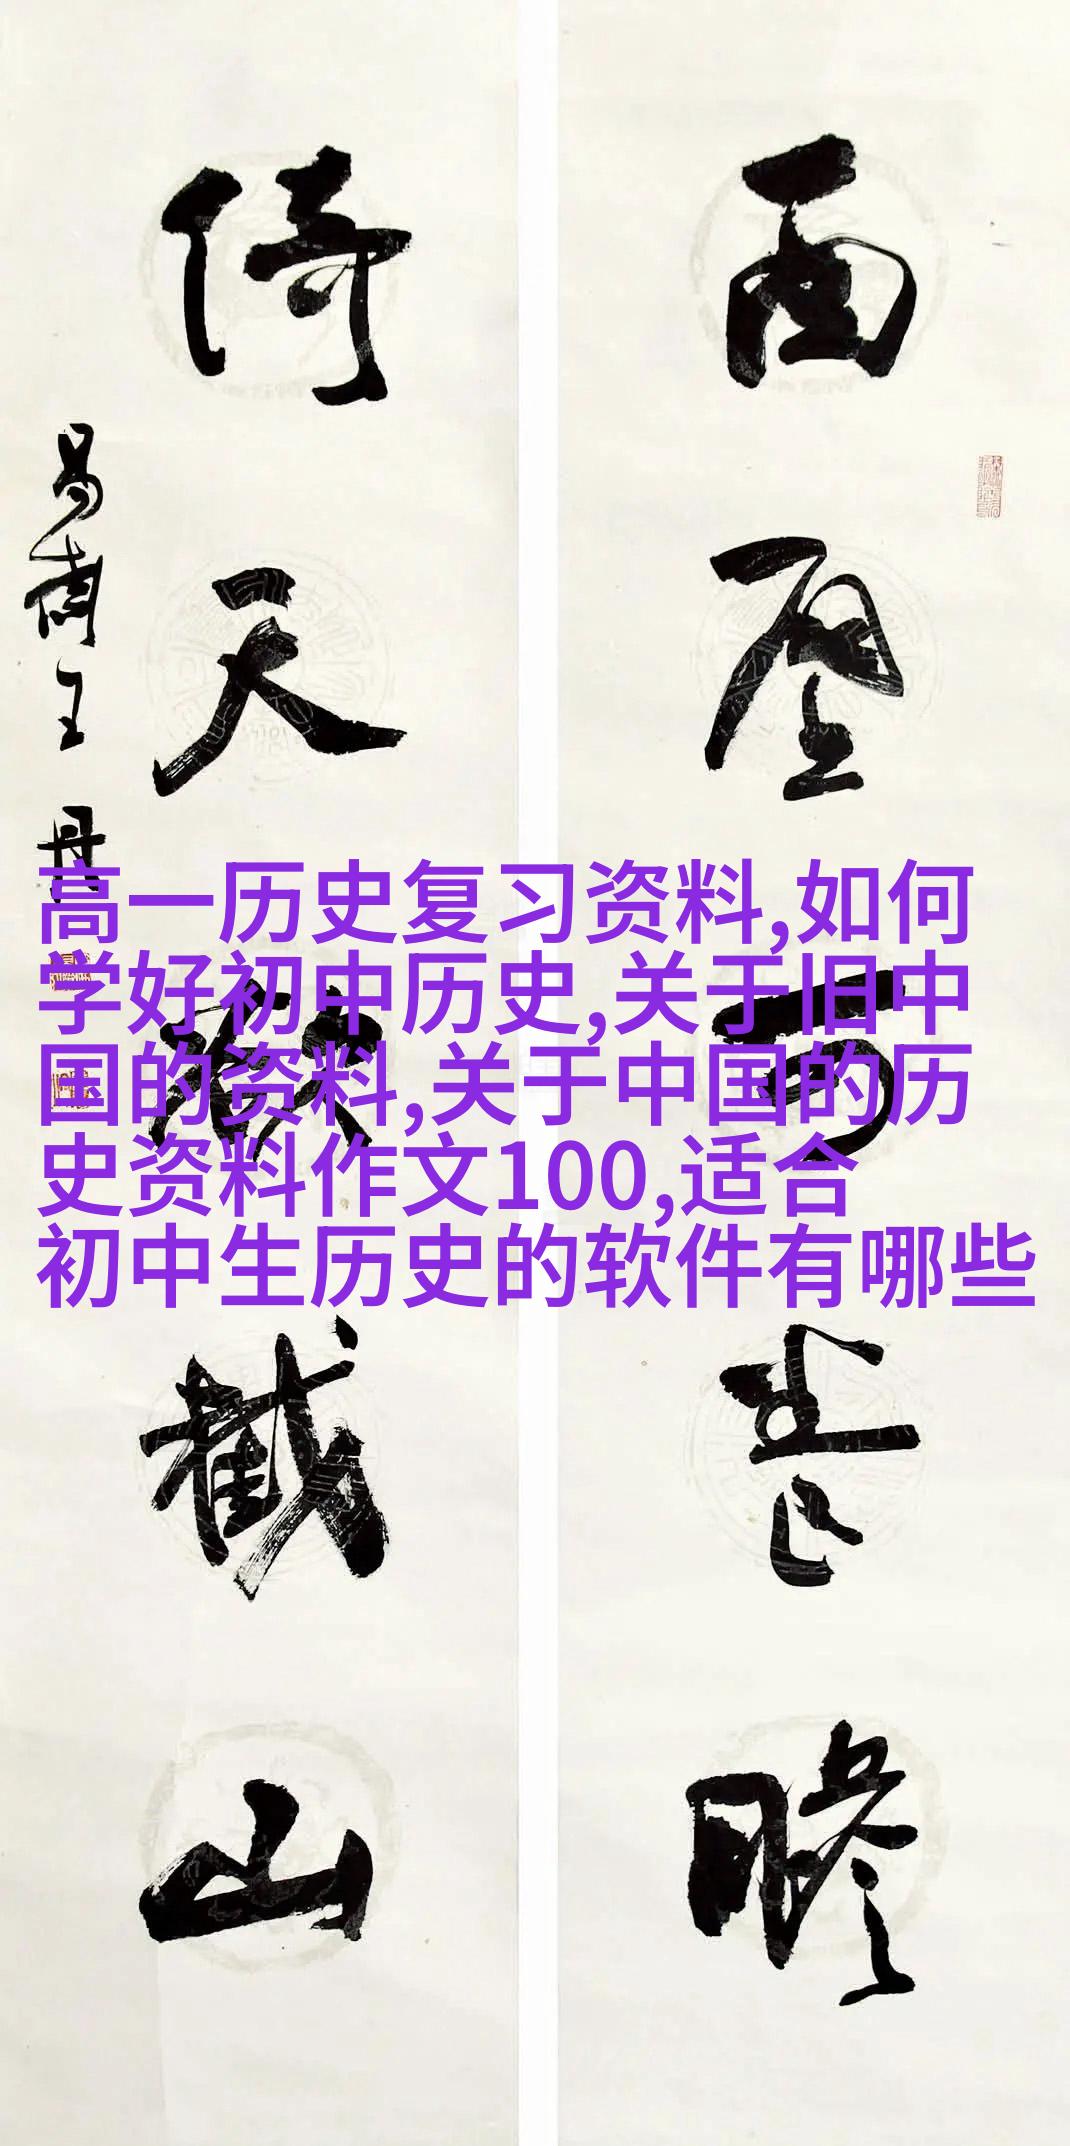 高一历史复习资料,如何
学好初中历史,关于旧中
国的资料,关于中国的历
史资料作文100,适合
初中生历史的软件有哪些
壁可瞻
倚天截山
王丹